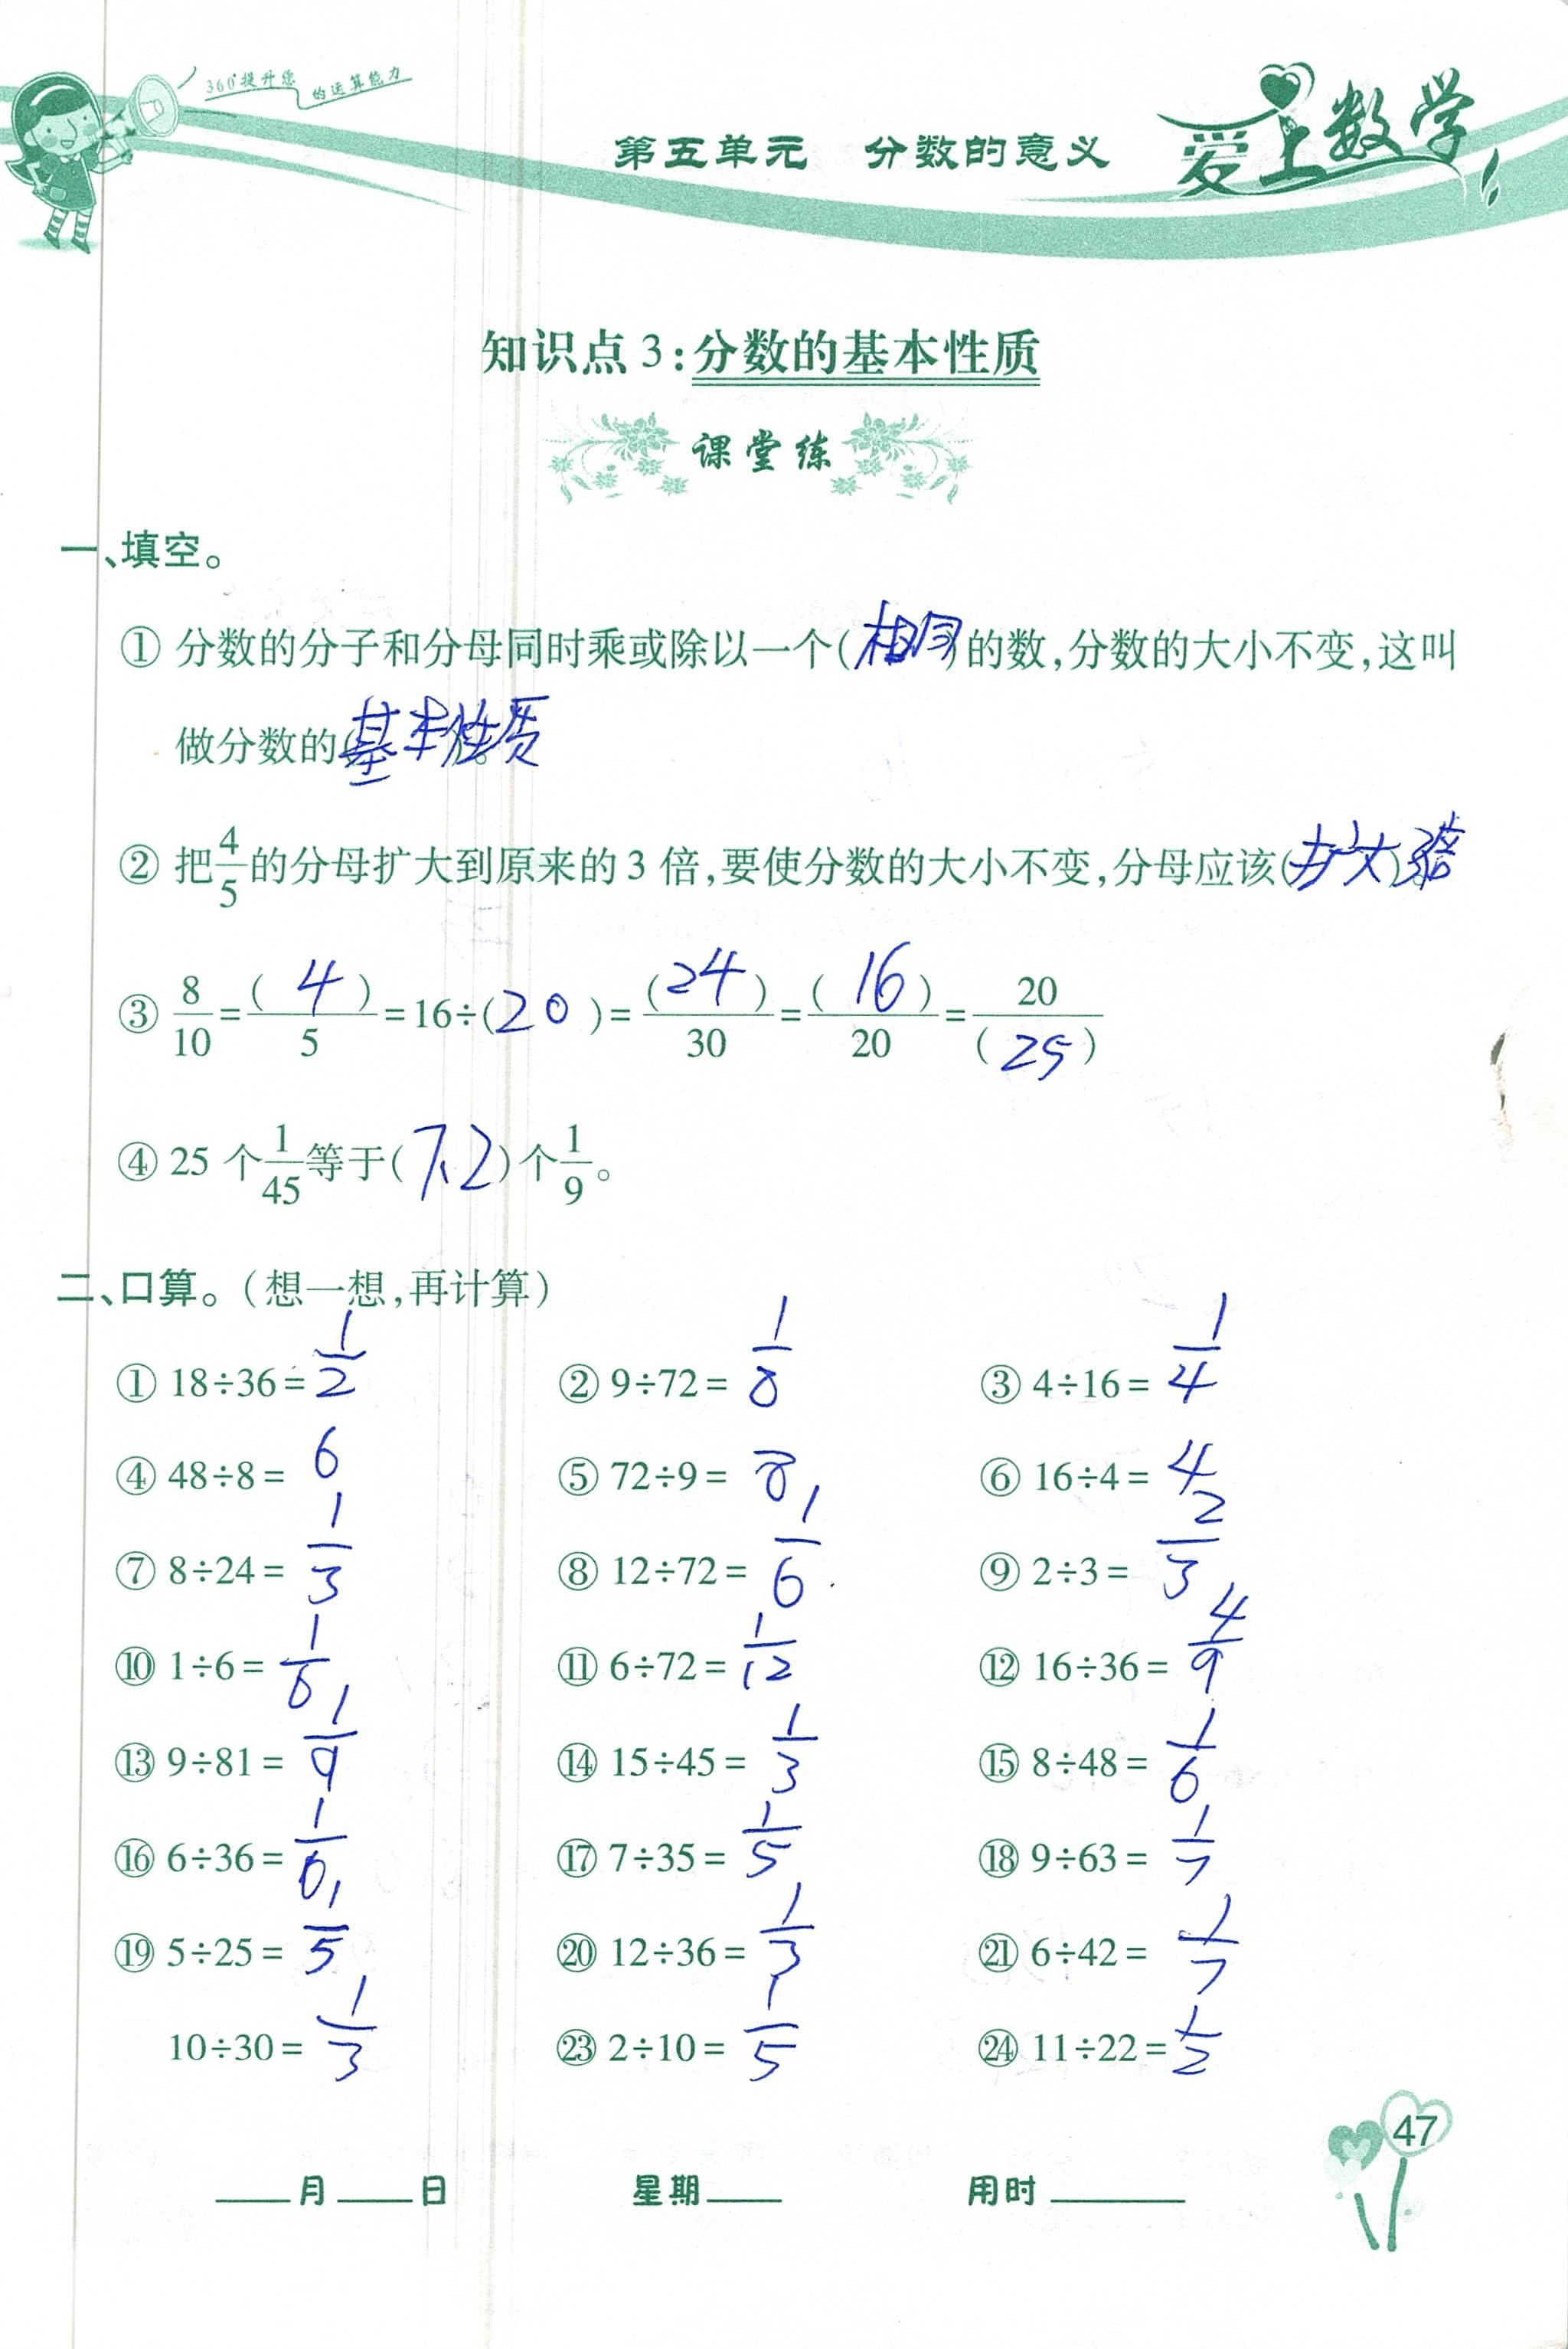 360°提升您的运算能力
第五单元 分数的意义 爱上数学
知识点3:分数的基本性质
课堂练
一、填空。
① 分数的分子和分母同时乘或除以一个(相同)的数,分数的大小不变,这叫
做分数的(基本性质)。
② 把4/5的分母扩大到原来的3倍,要使分数的大小不变,分母应该(扩大3倍)。
③ 8/10=(4)/5=16÷(20)=(24)/30=(16)/20=20/(25)
④ 25个1/45等于(7.2)个1/9。
二、口算。(想一想,再计算)
① 18÷36=1/2 ② 9÷72=1/8 ③ 4÷16=1/4
④ 48÷8=6 ⑤ 72÷9=8 ⑥ 16÷4=4
⑦ 8÷24=1/3 ⑧ 12÷72=1/6 ⑨ 2÷3=2/3
⑩ 1÷6=1/6 ⑪ 6÷72=1/12 ⑫ 16÷36=4/9
⑬ 9÷81=1/9 ⑭ 15÷45=1/3 ⑮ 8÷48=1/6
⑯ 6÷36=1/6 ⑰ 7÷35=1/5 ⑱ 9÷63=1/7
⑲ 5÷25=1/5 ⑳ 12÷36=1/3 ㉑ 6÷42=1/7
10÷30=1/3 ㉓ 2÷10=1/5 ㉔ 11÷22=1/2
47
____月____日 星期____ 用时______